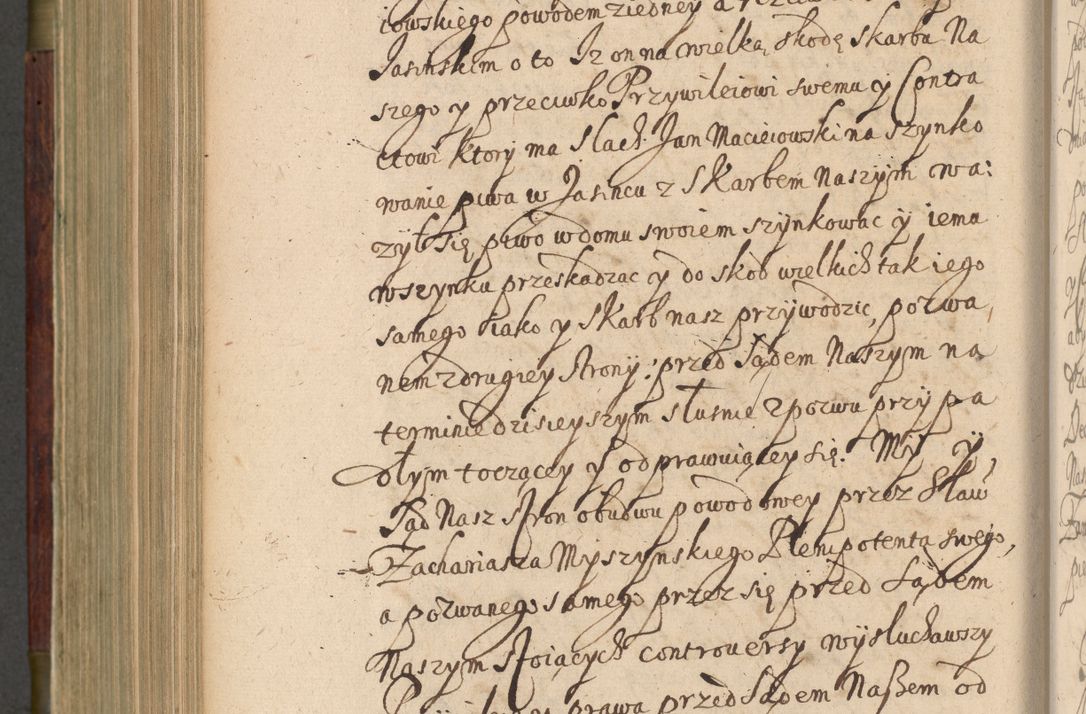 iowskiego powodem ziedney a
Jasinskim o to Iz on na wielką skodę skarbu Na
szego y przeciwko Przywileiowi swemu y Contra
ctowi ktory ma Slach. Jan Maciciowski na szynko
wanie piwa w Jasincu z Skarbem Naszym wa:
zył się piwo w domu swoiem szynkowac y iemu
w szynku przeskadzac y do skod wielkich tak iego
samego iako y Skarb nasz przywodzic, pozwa
nem z drugiey strony: przed Sądem Naszym na
terminie dzisieyszym słusnie z pozwu przypa
dłym toczącey y odprawuiącey się. My y
Sąd Nasz stron obudwu powodowey przez Sław
Zachariasza Myszynskiego Plenipotenta swego,
a pozwanego samego przez się przed Sądem
Naszym stoiących controversy wysłuchawszy
prawa przed Sądem Naßem od